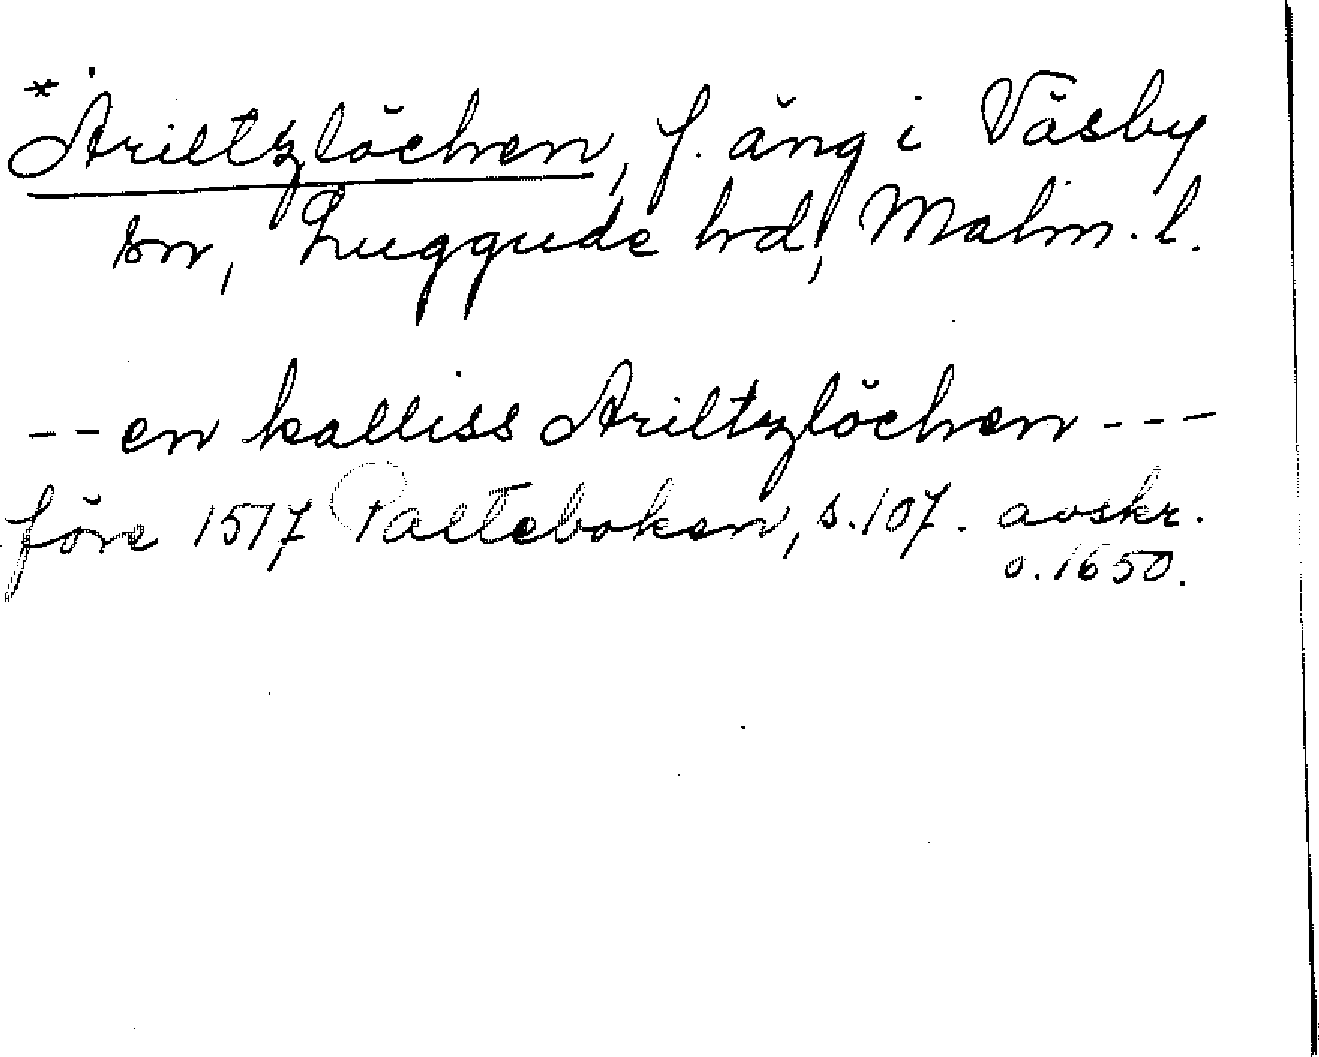 * Ariltzlöchen, f. äng i Väsby
sn, Luggude hd, Malm. l.
-- en kalliss Ariltzlöchen ---
före 1517 Palteboken, s. 107. avskr.
o. 1650.